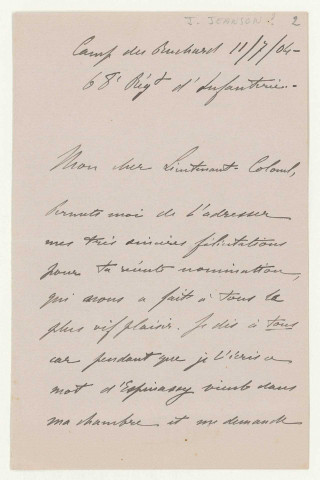 J. JEANSON. 2
Camp du Ruchard 11/7/04-
68e Régt d'Infanterie.-
Mon cher Lieutenant-Colonel,
Permets moi de t'adresser
mes très sincères félicitations
pour ta récente nomination,
qui nous a fait à tous le
plus vif plaisir. Je dis à tous
car pendant que je t'écris ce
mot d'Espinassy vient dans
ma chambre et me demande